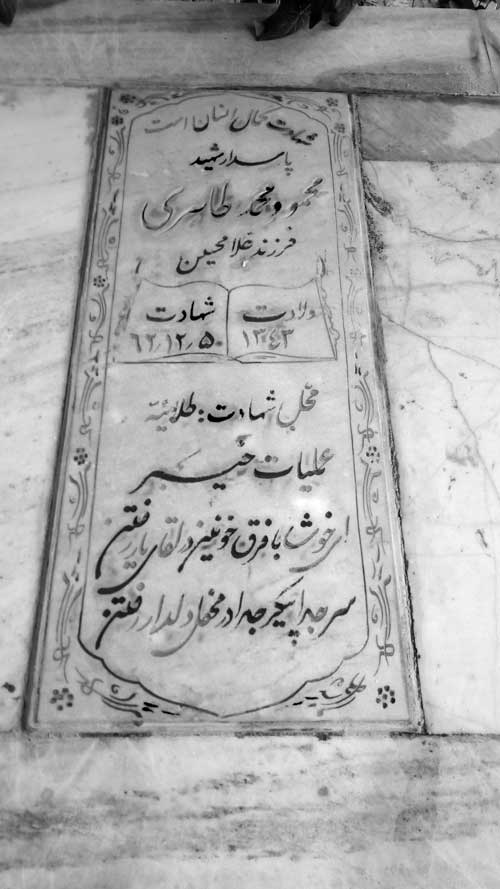 شهادت کمال انسان است
پاسدار شهید
محمود محمد طاهری
فرزند غلامحسین
ولادت
۱۳۴۳
شهادت
۶۲٫۱۲٫۵
محل شهادت: طلائیه
عملیات خیبر
ای خوشا با فرق خونین در لقای یار رفتن
سر جدا پیکر جدا در محفل دلدار رفتن